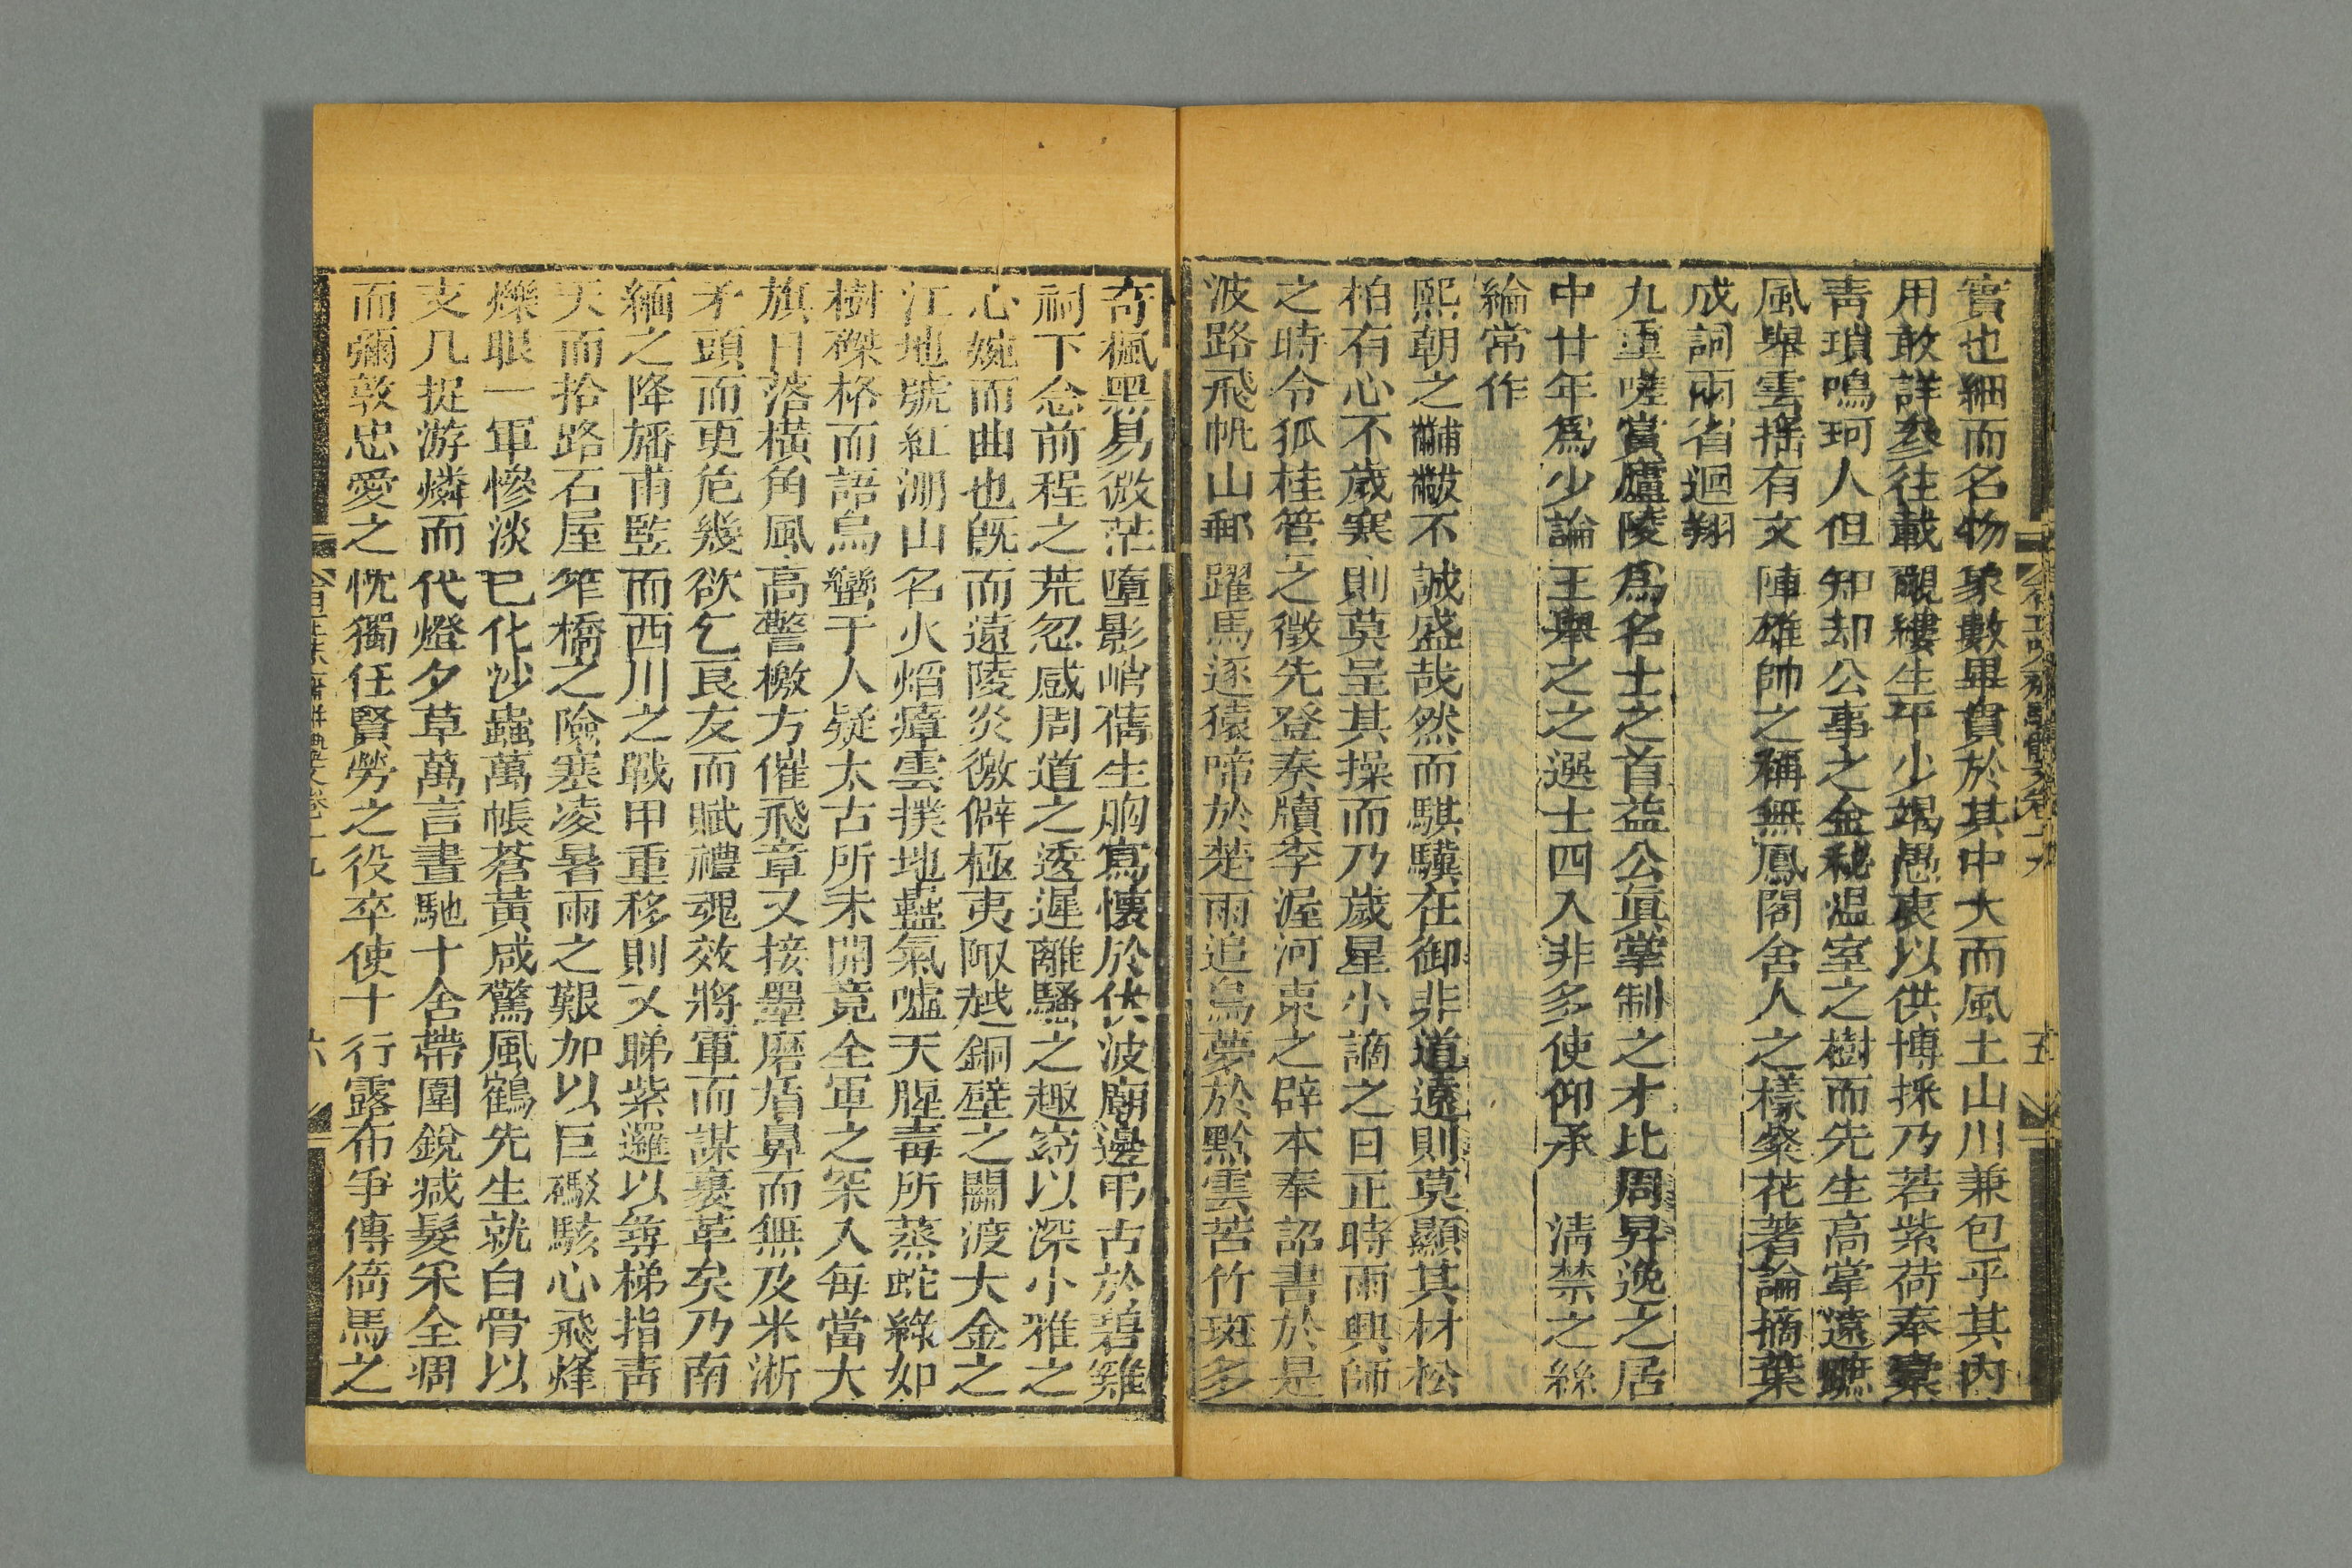 實也細而名物象數畢貫於其中大而風土山川兼包乎其內
用敢詳參往載覼縷生平少竭愚衷以供博採乃若紫荷奉橐
靑瑣鳴珂人但知却公事之金秘温室之樹而先生高掌遠蹠
風舉雲揺有文陣雄帥之稱無鳳閣舍人之樣粲花著論摘葉
成詞兩省迴翔
九重嗟賞廬陵爲名士之首益公眞掌制之才比周昇逸之居
中廿年爲少論王舉之之選士四入非多使仰承 淸禁之絲
綸常作
熙朝之黼黻不誠盛哉然而騏驥在御非道遠則莫顯其材松
柏有心不歲寒則莫呈其操而乃歲星小謫之日正時雨興師
之時令狐桂管之徵先登奏牘李渥河東之辟本奉詔書於是
波路飛帆山郵躍馬逐猿啼於楚雨追鳥夢於黔雲苦竹斑多
奇楓黑易微茫墮影峭蒨生胷寫懷於伏波廟邊弔古於碧雞
祠下念前程之荒忽感周道之逶遲離騷之趣窈以深小雅之
心婉而曲也旣而遠陵炎徼僻極夷陬越銅壁之關渡大金之
江地號紅淜山名火焰瘴雲撲地蠚氣噓天腥毒所蒸蛇綠如
樹磔格而語鳥蠻于人疑太古所未開竟全軍之罙入每當大
旗日落橫角風高警檄方催飛章又接墨磨盾鼻而無及米淅
矛頭而更危幾欲乞良友而賦禮魂效將軍而謀裹革矣乃南
緬之降旛甫監而西川之戰甲重移則又睇紫邏以尋梯指靑
天而拾路石屋笮橋之險塞凌暑雨之艱加以巨礮駭心飛烽
爍眼一軍慘淡已化沙蟲萬帳蒼黃咸驚風鶴先生就白骨以
支几捉游燐而代燈夕草萬言晝馳十舍帶圍銳減髮采全凋
而彌敦忠愛之忱獨任賢勞之役卒使十行露布爭傳倚馬之